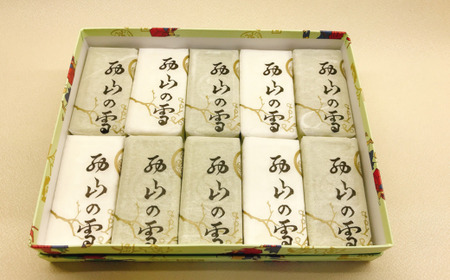 西山の雪
西山の雪
西山の雪
西山の雪
西山の雪
西山の雪
西山の雪
西山の雪
西山の雪
西山の雪